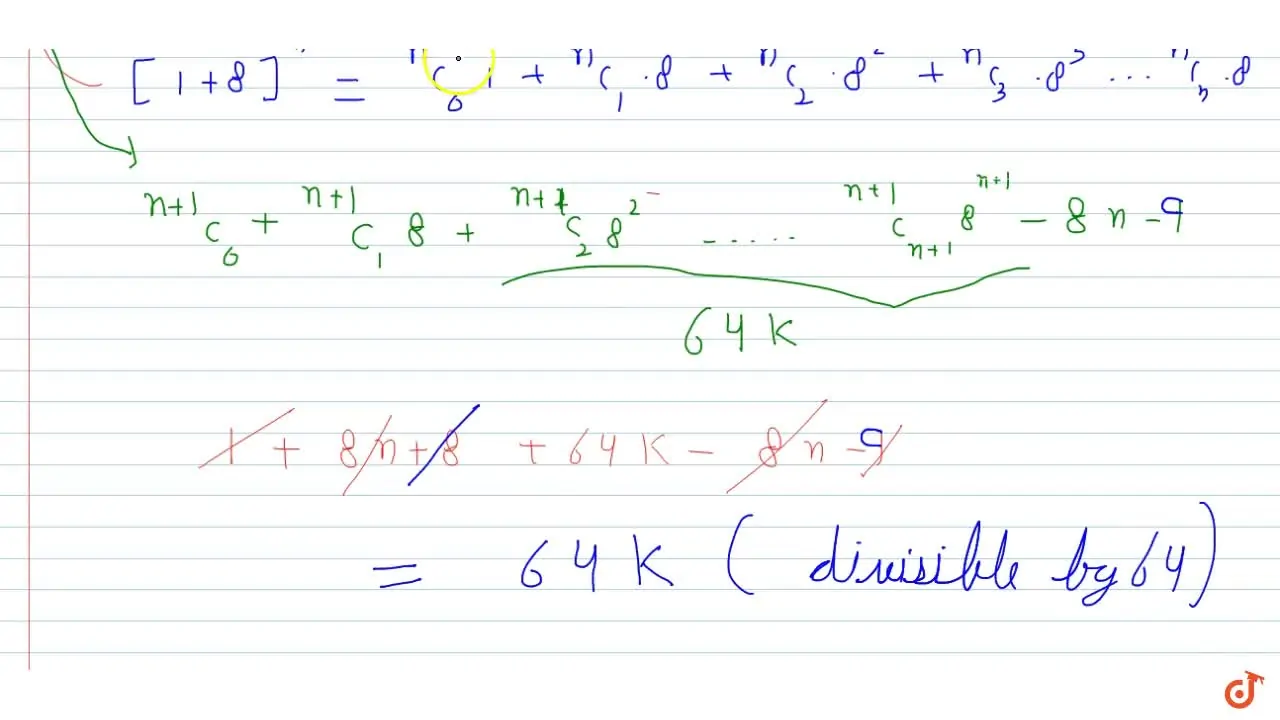 [1+8]ⁿ = ⁿC₀·1 + ⁿC₁·8 + ⁿC₂·8² + ⁿC₃·8³ ... ⁿCₙ·8
ⁿ⁺¹C₀ + ⁿ⁺¹C₁ 8 + ⁿ⁺¹C₂ 8² ------ ⁿ⁺¹Cₙ₊₁ 8ⁿ⁺¹ - 8n - 9
64K
1 + 8n + 8 + 64K - 8n - 9
= 64K (divisible by 64)